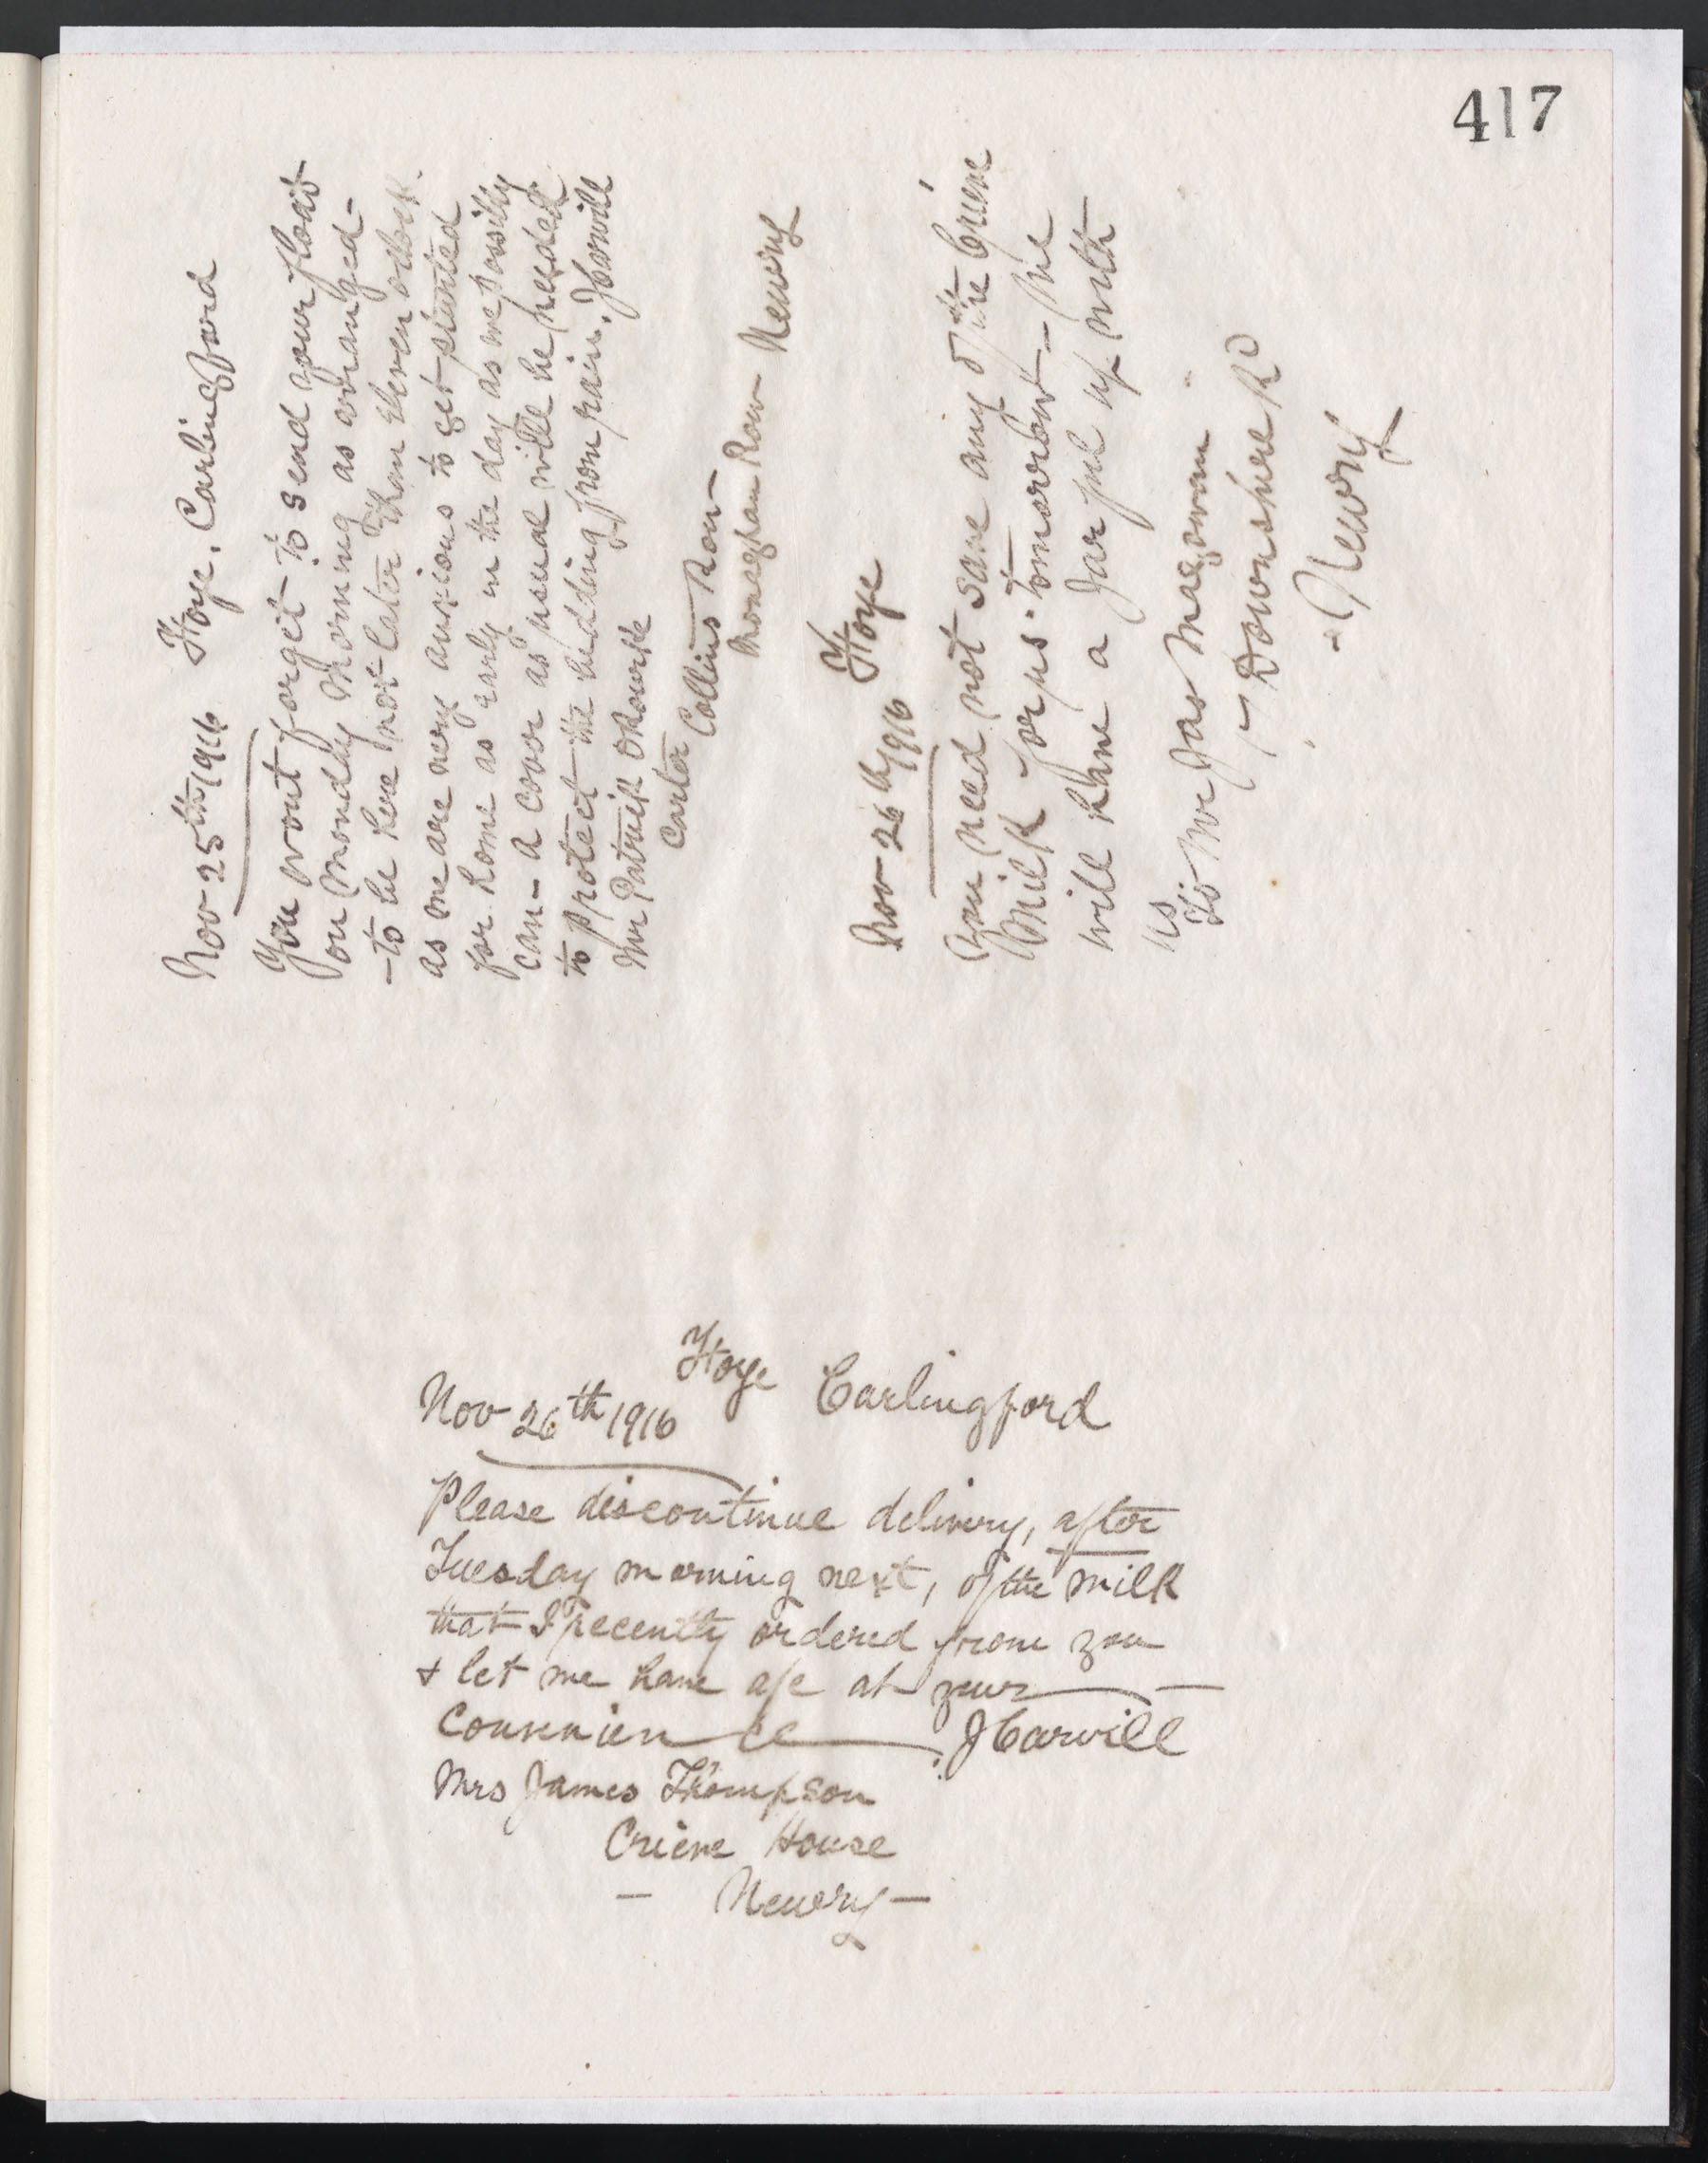 417
Nov 25th 1916 Hoye, Carlingford
You wont forget to send your float
on Monday Morning as arranged -
- to be here not later than eleven oclock
as we are very anxious to get started
for home as early in the day as we possibly
can - A cover as usual will be needed
to protect the bedding from rain. JCarvill
Mr Patrick ORourke
Carter Collins Row
Monaghan Row Newry
Nov 26th 1916 Hoye
You need not save any of the Crieve
Milk for us tomorrow - We
will have a Jar full of milk
To Mr Jas Magowan
7 Downshire Rd
- Newry
Hoye Carlingford
Nov 26th 1916
Please discontinue delivery, after
Tuesday morning next, of the milk
that I recently ordered from you
& let me have a/c at your -
Convenience JCarvill
Mrs James Thompson
Crieve House
- Newry -